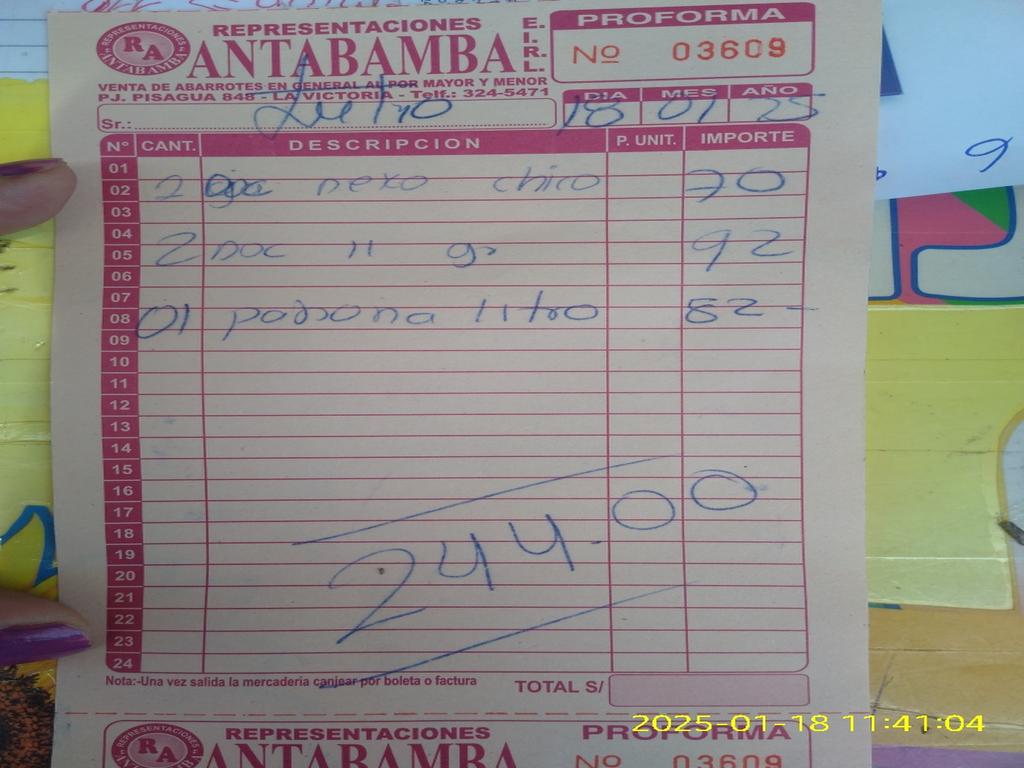 REPRESENTACIONES
ANTABAMBA E.I.R.L.
REPRESENTACIONES
RA
ANTABAMBA
VENTA DE ABARROTES EN GENERAL AL POR MAYOR Y MENOR
PJ. PISAGUA 848 - LA VICTORIA - Telf.: 324-5471
PROFORMA
Nº 03609
DIA MES AÑO
18 01 25
Sr.:
Nº CANT. DESCRIPCION P. UNIT. IMPORTE
01
02 2 nexo chico 70
03
04
05 2 Doc 11 gr 92
06
07
08 01 padrona litro 82-
09
10
11
12
13
14
15
16
17
18
19
20
21
22
23
24
244.00
Nota:-Una vez salida la mercadería canjear por boleta o factura
TOTAL S/
REPRESENTACIONES
RA
REPRESENTACIONES
ANTABAMBA
PROFORMA
Nº 03609
2025-01-18 11:41:04
6